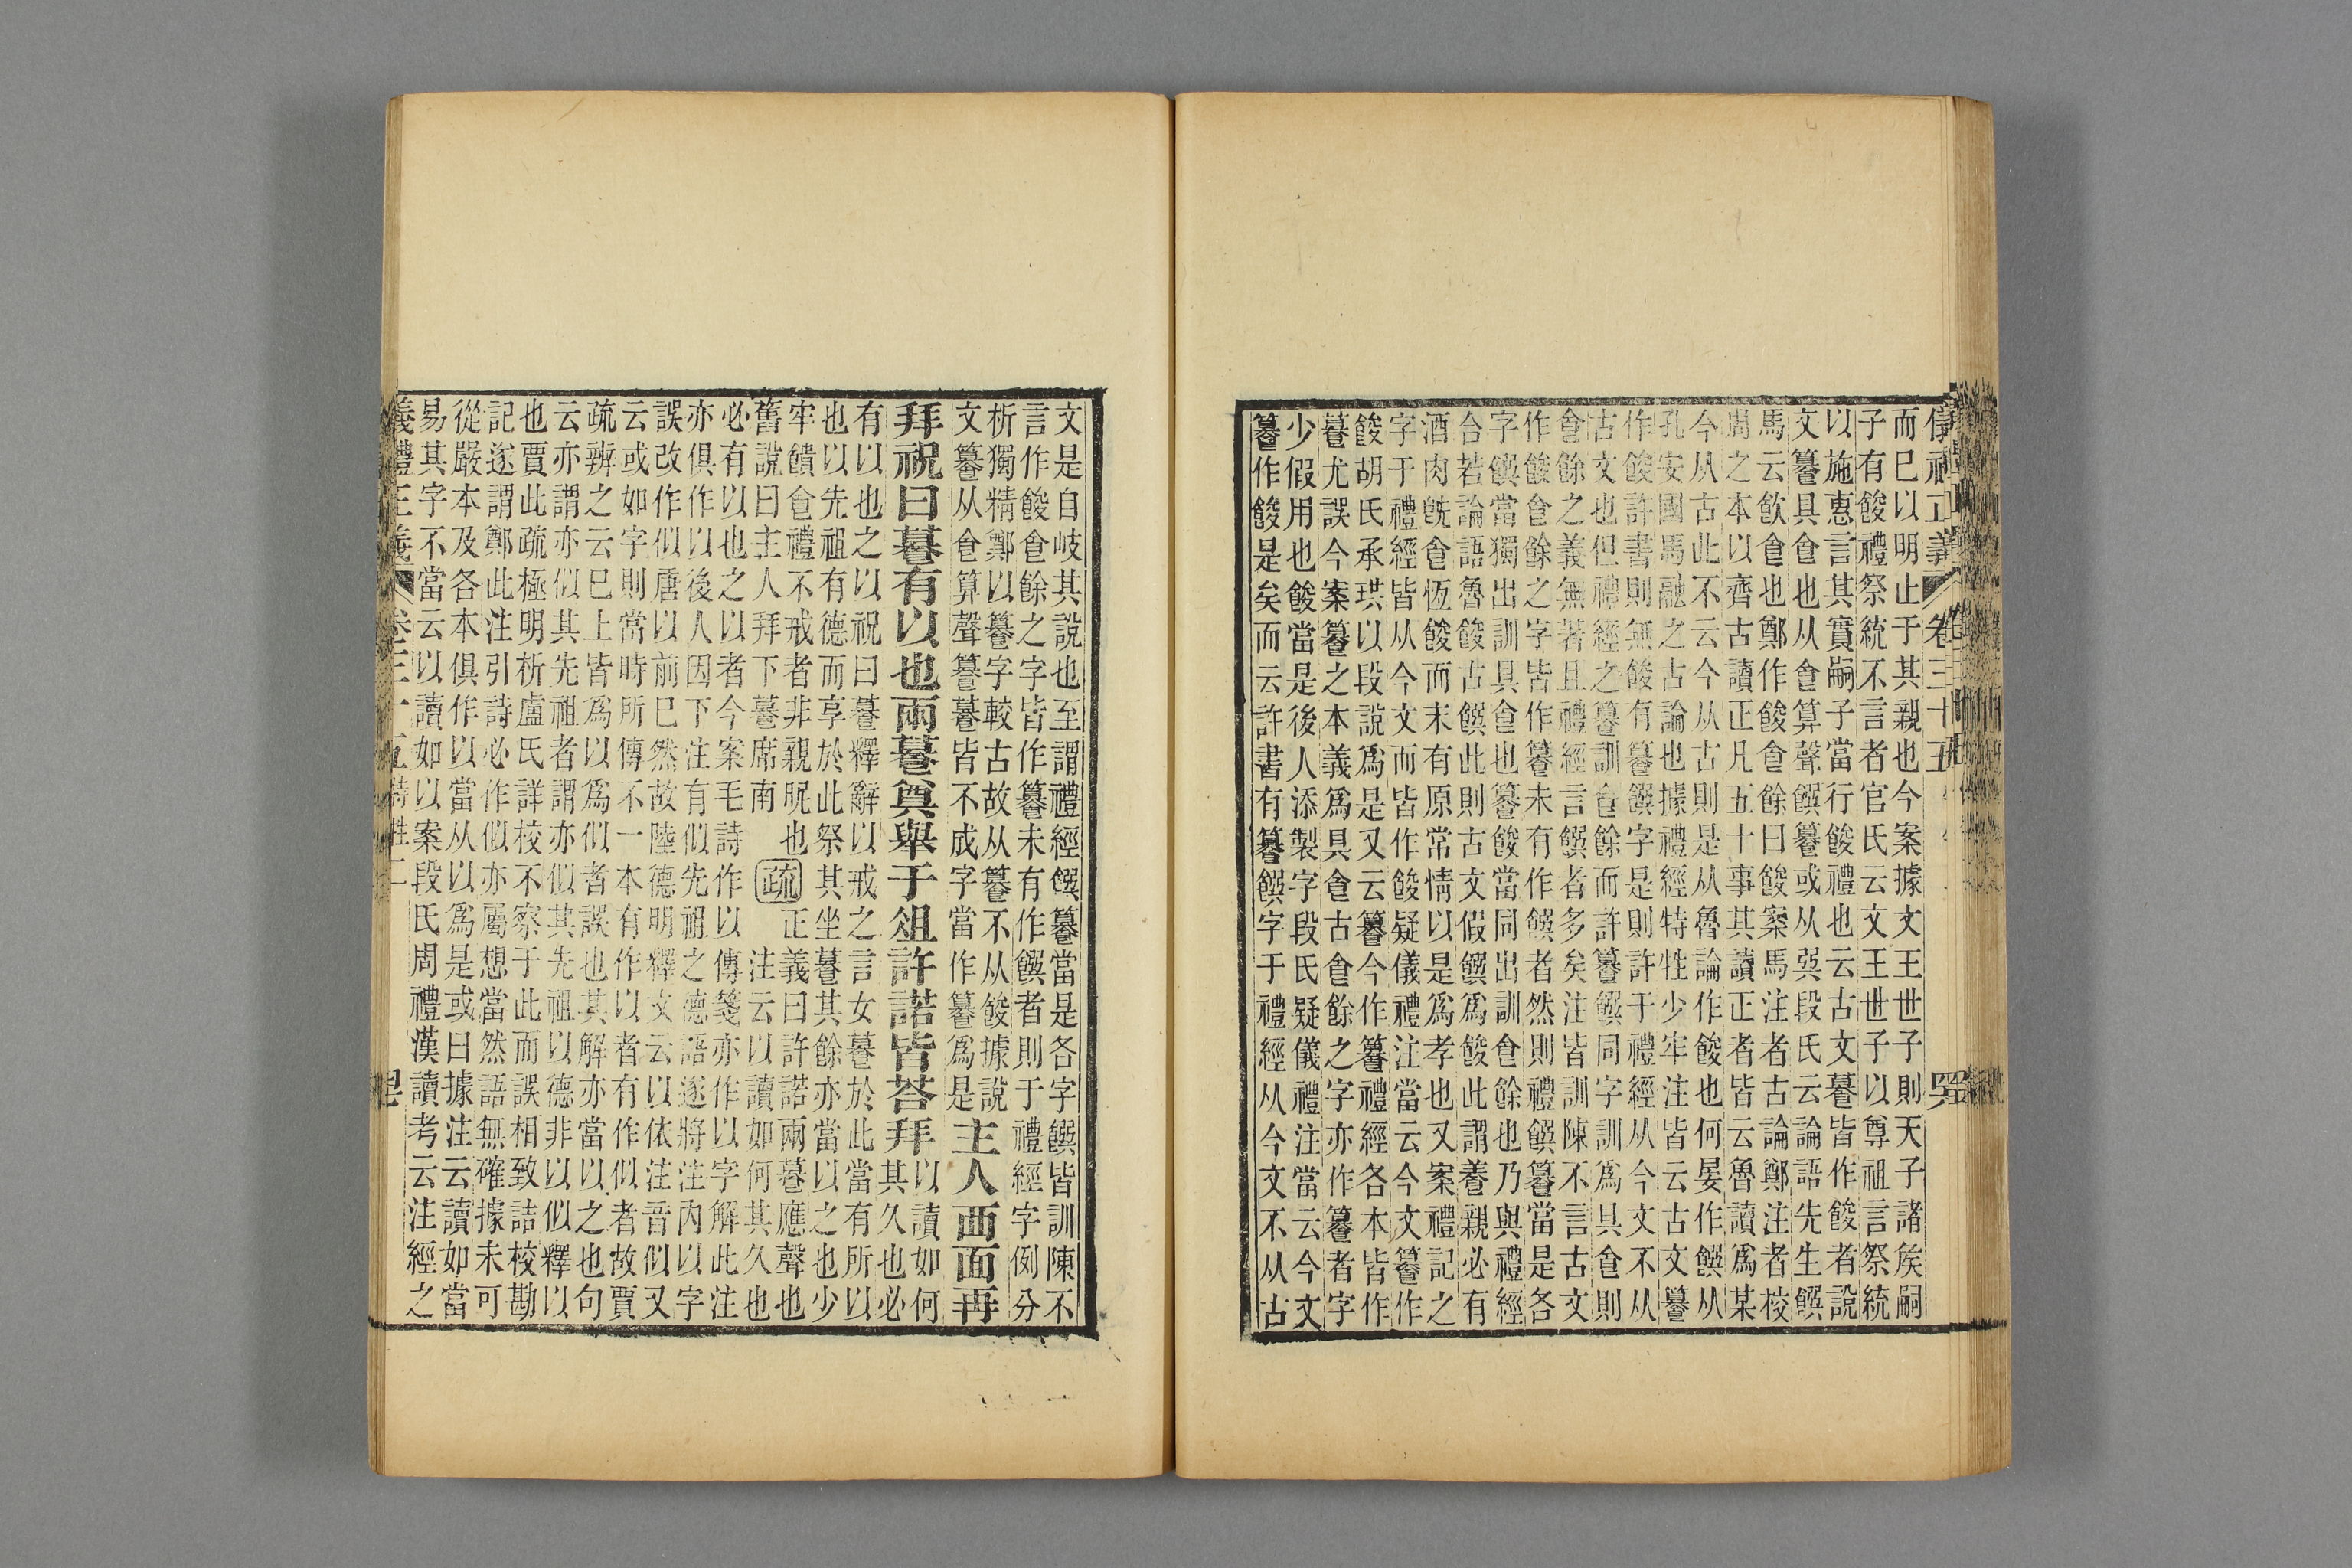 儀禮正義 卷三十五
而已以明止于其親也今案據文王世子則天子諸矦嗣
子有餕禮祭統不言者官氏云文王世子以尊祖言祭統
以施惠言其實嗣子當行餕禮也云古文䉵皆作餕者說
文籑具食也从食算聲饌籑或从巽段氏云論語先生饌
馬云飲食也鄭作餕食餘曰餕案馬注者古論鄭注者校
周之本以齊古讀正凡五十事其讀正者皆云魯讀爲某
今从古此不云今从古則是从魯論作餕也何晏作饌从
孔安國馬融之古論也據禮經特牲少牢注皆云古文䉵
作餕許書則無餕有籑饌字是則許于禮經从今文不从
古文也但禮經之籑訓食餘而許籑饌同字訓爲具食則
食餘之義無著且禮經言饌者多矣注皆訓陳不言古文
作餕食餘之字皆作籑未有作饌者然則禮饌籑當是各
字饌當獨出訓具食也籑餕當同出訓食餘也乃與禮經
合若論語魯餕古饌此則古文假饌爲餕此謂養親必有
酒肉旣食恆餕而末有原常情以是爲孝也又案禮記之
字于禮經皆从今文而皆作餕疑儀禮注當云今文籑作
餕胡氏承珙以段說爲是又云籑今作籑禮經各本皆作
䉵尤誤今案籑之本義爲具食古食餘之字亦作籑者字
少假用也餕當是後人添製字段氏疑儀禮注當云今文
籑作餕是矣而云許書有籑饌字于禮經从今文不从古
文是自岐其說也至謂禮經饌籑當是各字饌皆訓陳不
言作餕食餘之字皆作籑未有作饌者則于禮經字例分
析獨精鄭以籑字較古故从籑不从餕據說
文籑从食算聲籑䉵皆不成字當作籑爲是
主人西面再
拜祝曰䉵有以也兩䉵奠舉于俎許諾皆荅拜
以讀如何
其久也必
有以也之以祝曰䉵釋辭以戒之言女䉵於此當有所以
也以先祖有德而享於此祭其坐䉵其餘亦當以之也少
牢饋食禮不戒者非親昵也
舊說曰主人拜下䉵席南
疏
正義曰許諾兩䉵應聲也
注云以讀如何其久也
必有以也之以者今案毛詩作以傳箋亦作以字解此注
亦俱作以後人因下注有似先祖之德語遂將注內以字
誤改作似唐以前已然故陸德明釋文云以依注音似又
云或如字則當時所傳不一本有作以者有作似者故賈
疏辨之云已上皆爲以爲似者誤也其解亦當以之也句
云亦謂亦似其先祖者謂亦似其先祖以德非以似釋以
也賈此疏極明析盧氏詳校不察于此而誤相致詰校勘
記遂謂鄭此注引詩必作似亦屬想當然語無確據未可
從嚴本及各本俱作以當从以爲是或曰據注云讀如當
易其字不當云以讀如以案段氏周禮漢讀考云注經之